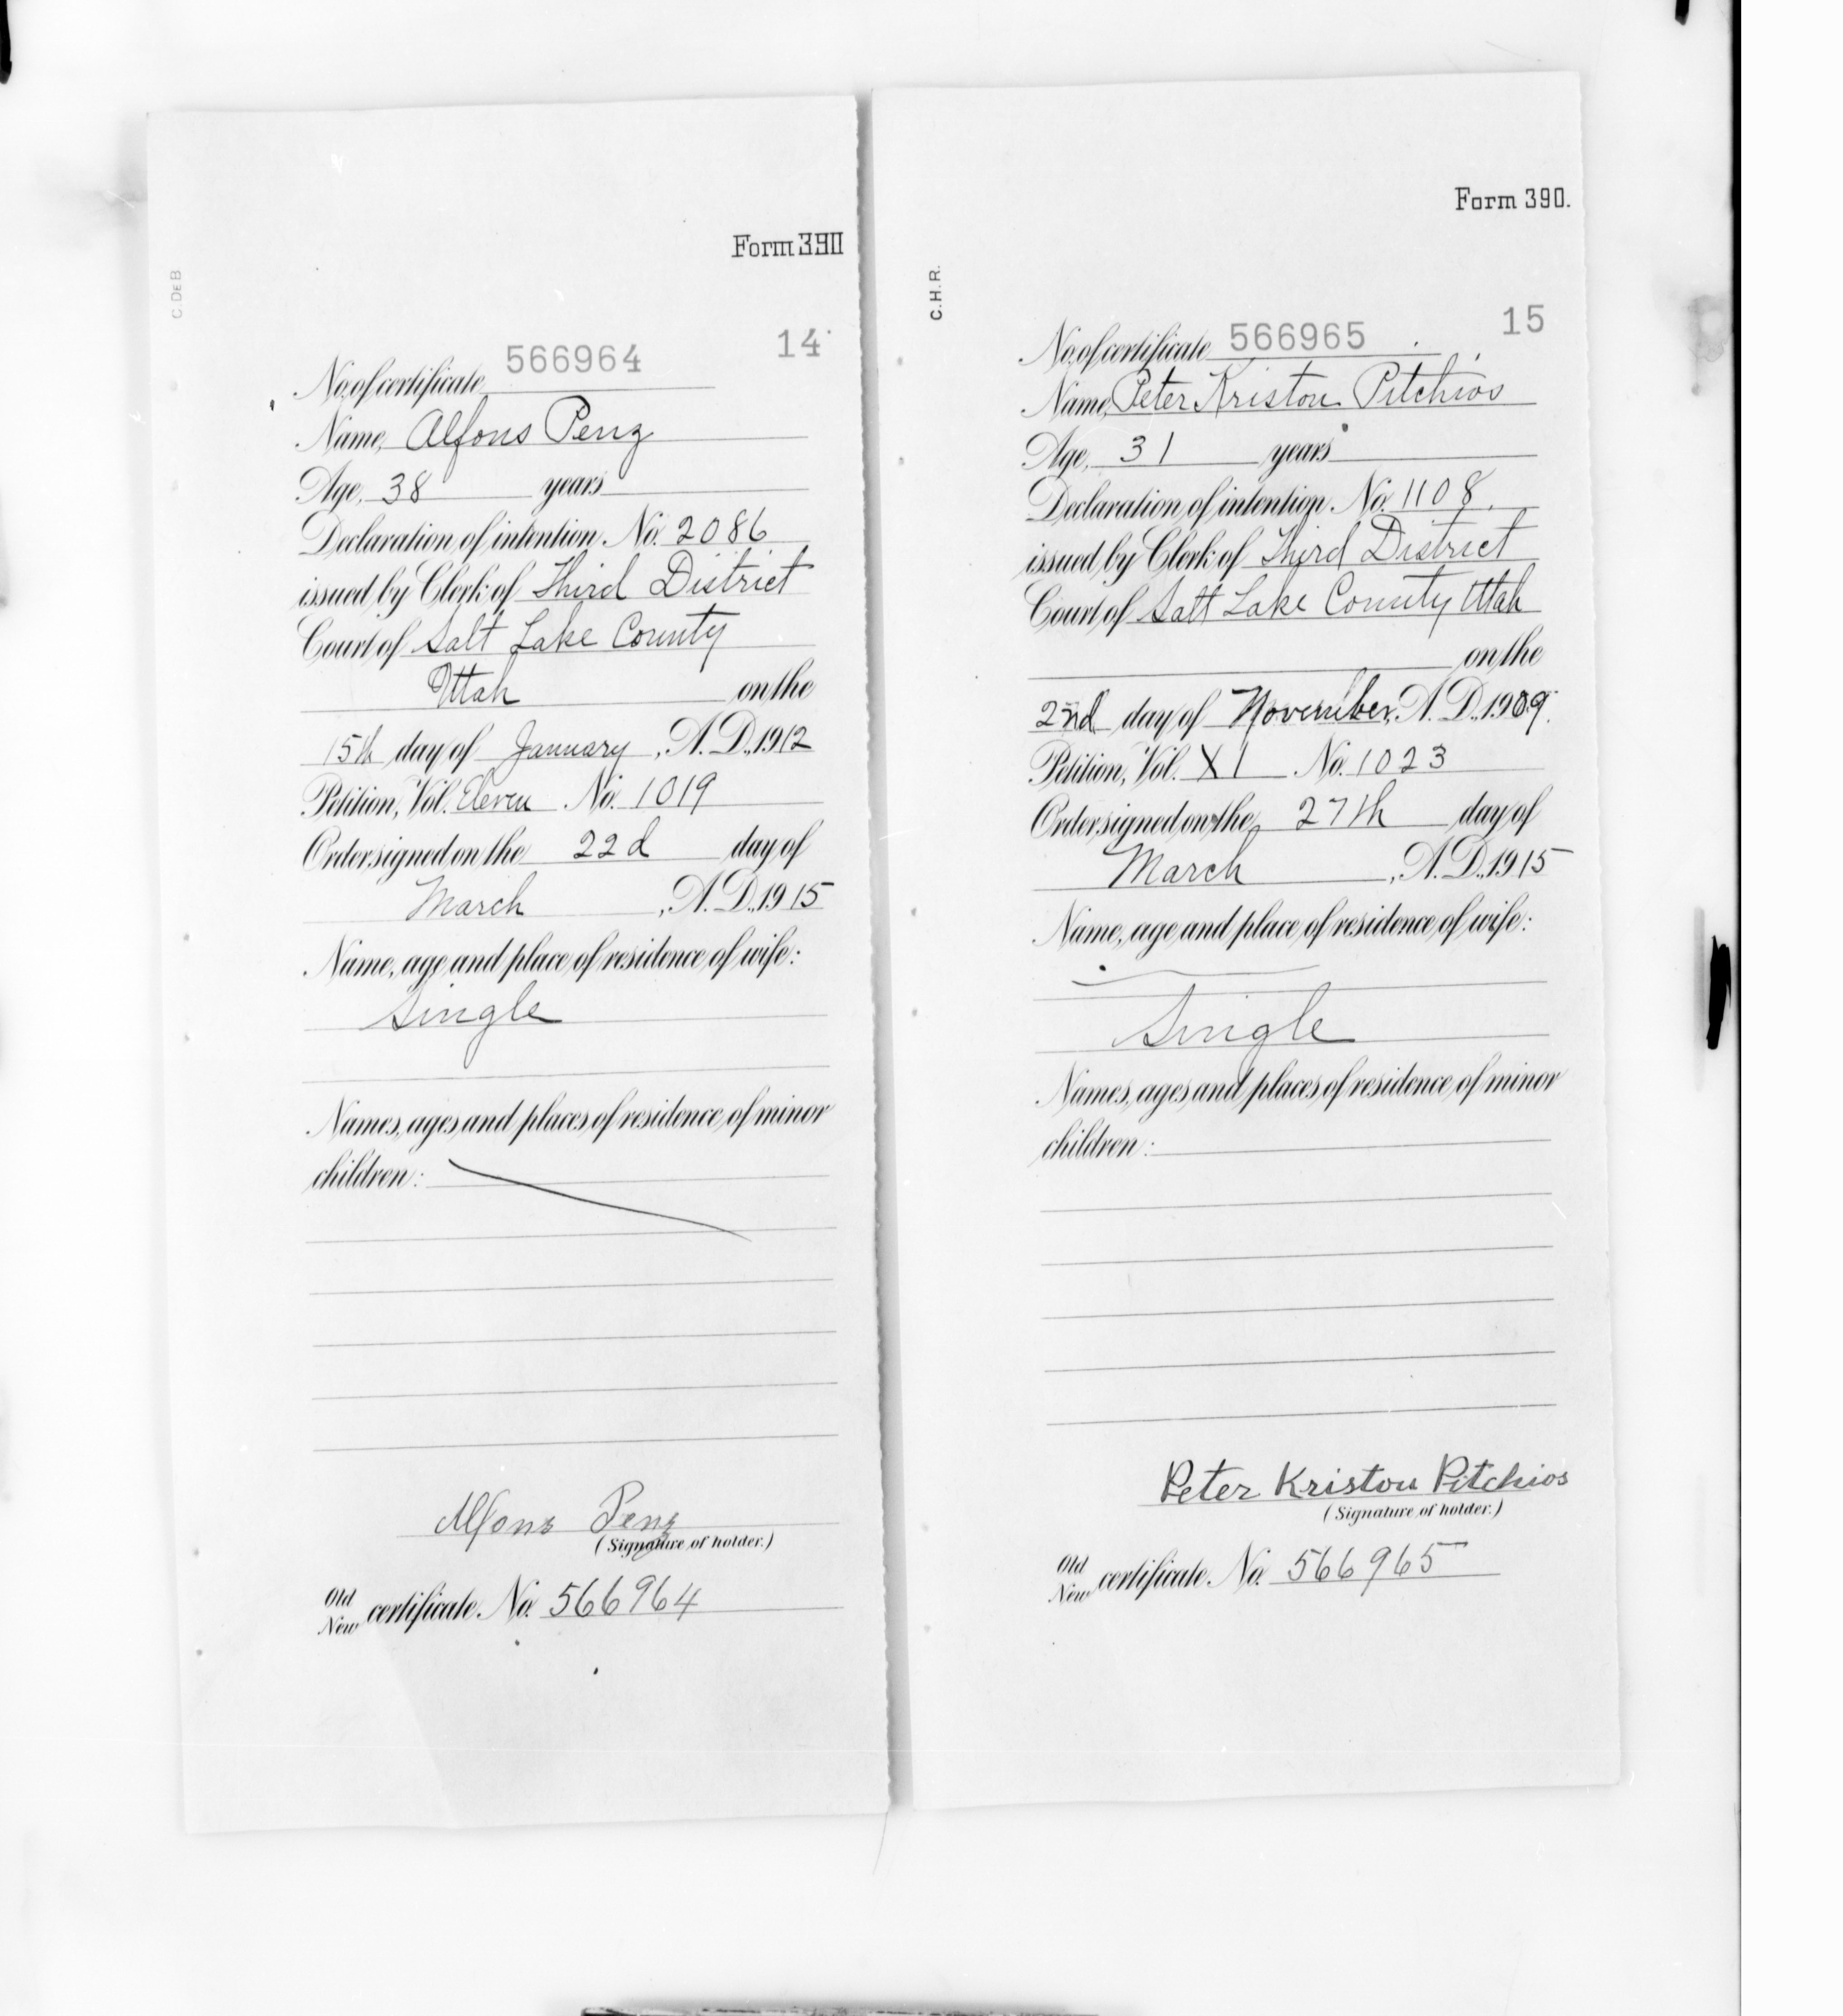 Form 390
C.DEB
14
No. of certificate 566964
Name, Alfons Penz
Age, 38 years
Declaration of intention No. 2086
issued by Clerk of Third District
Court of Salt Lake County
Utah on the
15th day of January, A. D., 1912
Petition, Vol. Eleven No. 1019
Order signed on the 22d day of
March, A. D., 1915
Name, age and place of residence of wife:
Single
Names, ages and places of residence of minor
children:
Alfons Penz
(Signature of holder.)
Old
New certificate No. 566964
Form 390.
C.H.R.
15
No. of certificate 566965
Name, Peter Kriston Pitchios
Age, 31 years
Declaration of intention No. 1108.
issued by Clerk of Third District
Court of Salt Lake County Utah
on the
2nd day of November, A. D., 1909.
Petition, Vol. XI No. 1023
Order signed on the 27th day of
March, A. D., 1915
Name, age and place of residence of wife:
Single
Names, ages and places of residence of minor
children:
Peter Kristou Pitchios
(Signature of holder.)
Old
New certificate No. 566965